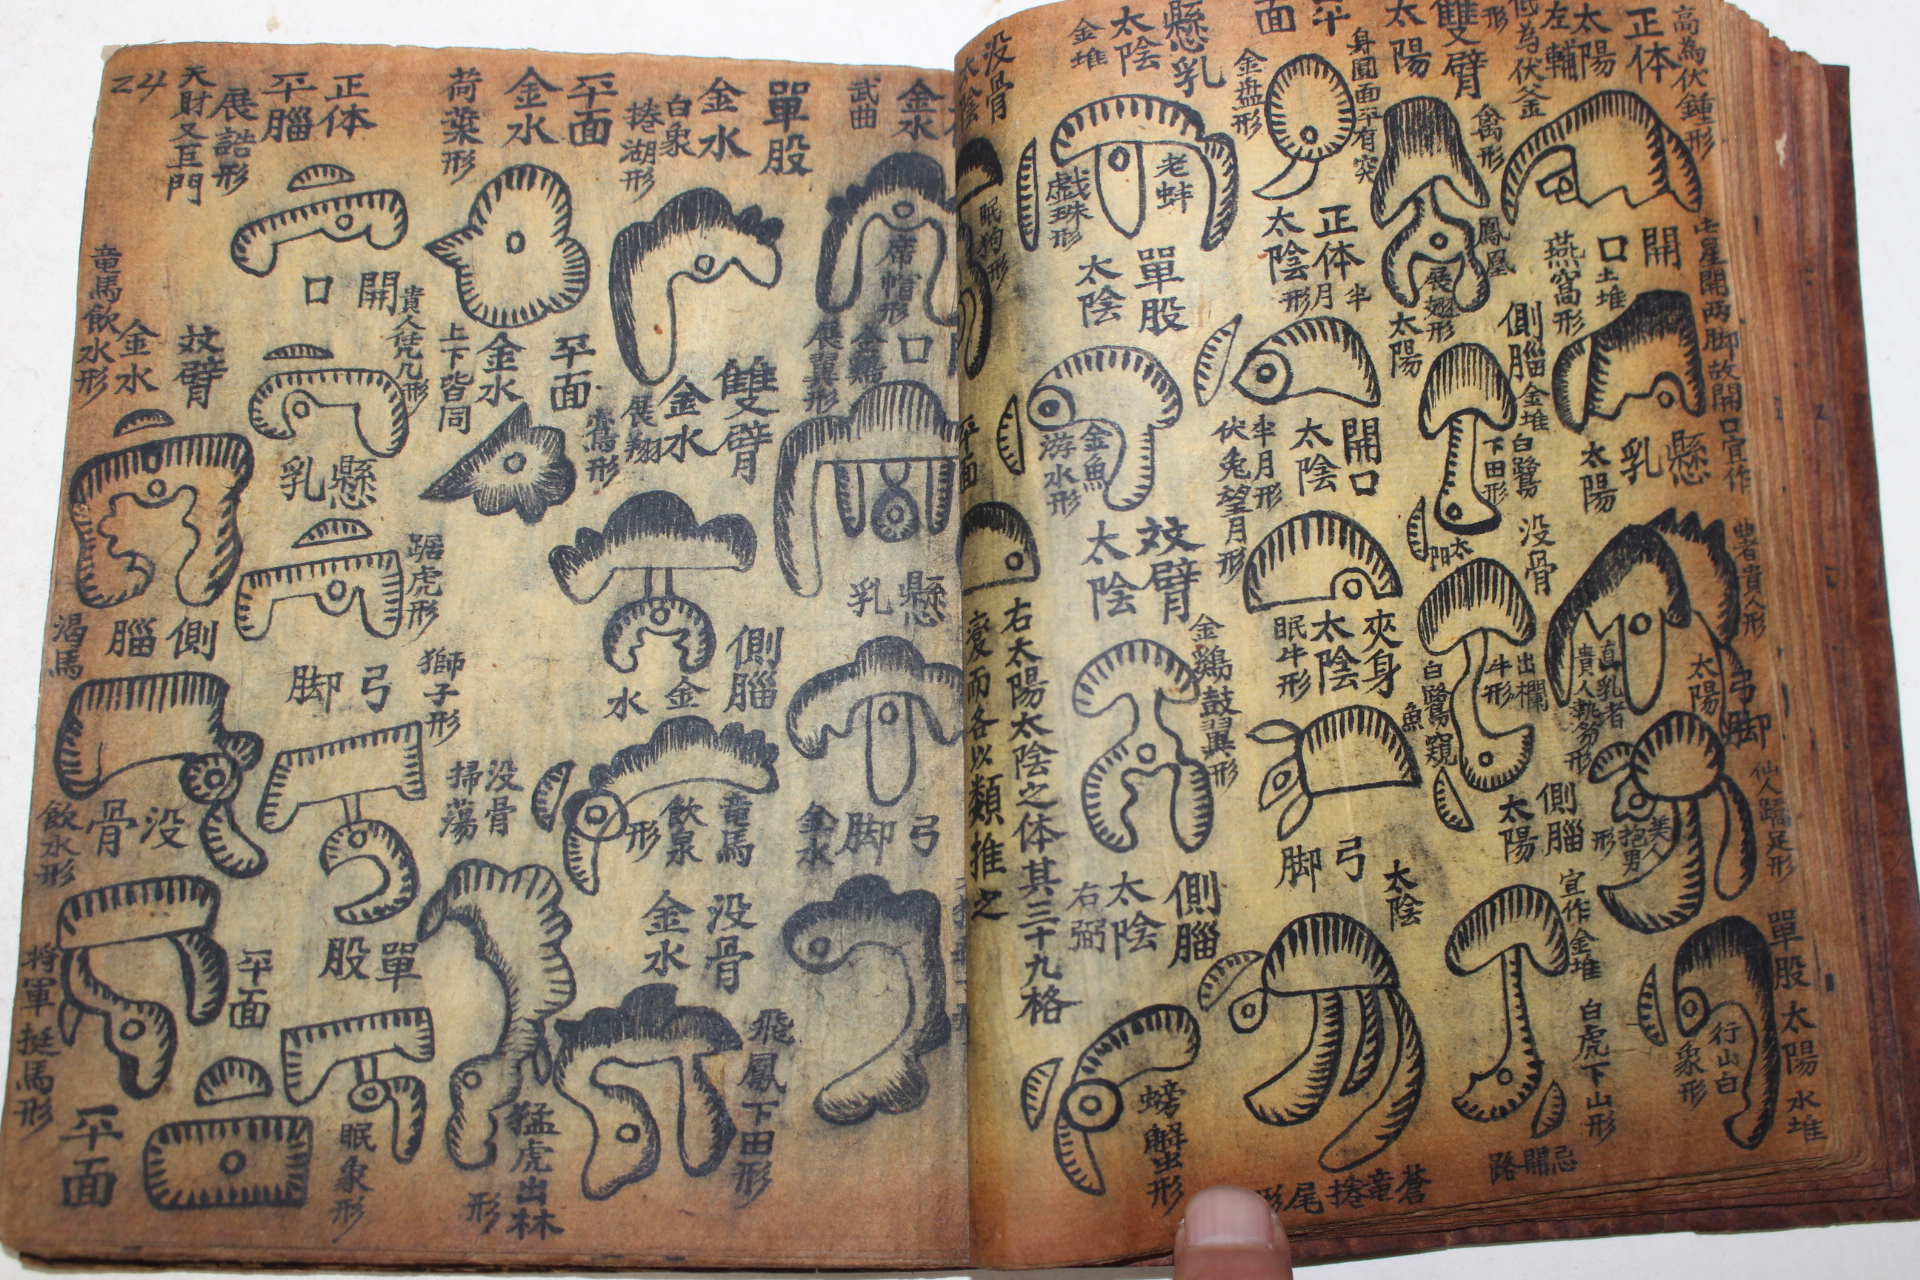 高為伏鍾形
正体
太陽
左輔
低為伏釜形
七星開两脚故開口宜作
開口
土堆
燕窩形
懸乳
太陽
貴人形
直乳者
貴人執笏形
弓脚
太陽
仙人蹻足形
美人
抱男
形
單股太陽水堆
行山白
象形
雙臂
太陽
禽形
鳳凰
展翅形
側腦
太陽
金堆
白鷺
下田形
没骨
太陽
出欄
牛形
白鷺窺
魚
側腦
太陽
宜作金堆
白虎下山形
忌開路
平面
身圓面平有突
金盤形
正体
太陰
半月形
開口
太陰
半月形
伏兔望月形
夾身
太陰
眠牛形
弓脚
太陰
蒼竜捲尾形
懸乳
太陰
金堆
老蚌
戯珠形
單股
太陰
金魚
游水形
双臂
太陰
金鷄鼓翼形
側腦
太陰
右弼
螃蟹形
没骨
太陰
眠狗形
平面
右太陽太陰之体其三十九格
変而各以類推之
金水
武曲
席帽形
開口
金鷄
展翼形
懸乳
弓脚
金水
單股
金水
白象
捲湖形
雙臂
金水
展翔
側腦
金水
竜馬
飲泉
形
没骨
金水
飛鳳下田形
平面
金水
荷葉形
平面
金水
上下皆同
鳶形
没骨
掃蕩
猛虎出林
形
正体
平腦
展誥形
天財又巨門
24
開口
貴人凭几形
懸乳
踞虎形
弓脚
獅子形
單股
眠象形
双臂
金水
竜馬飲水形
側腦
渴馬
飲水形
没骨
将軍挺馬形
平面
平面